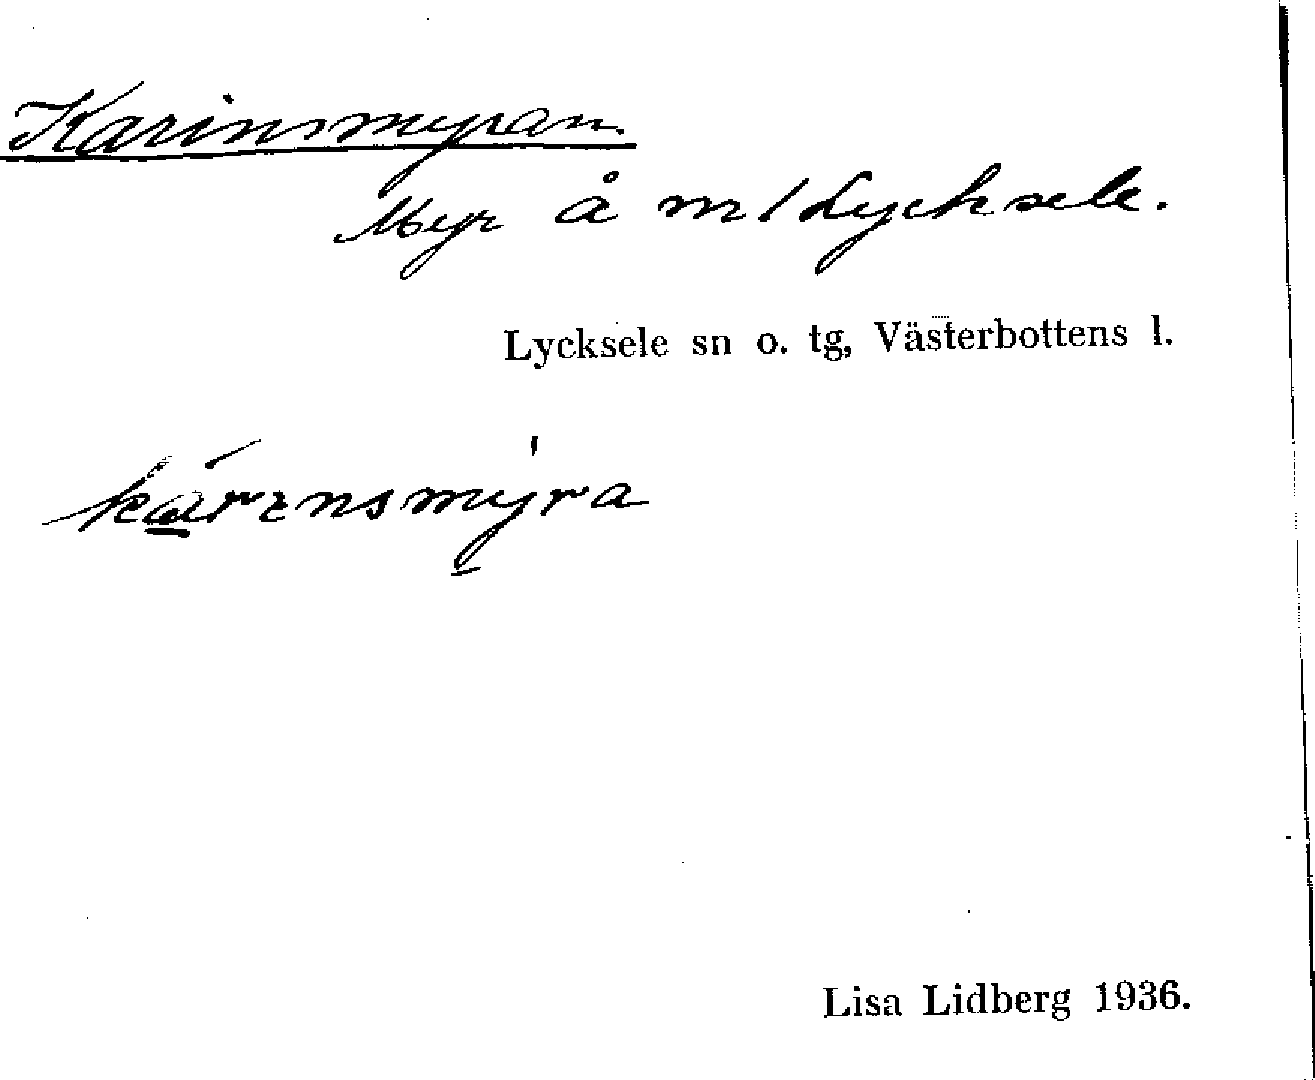 Karinsmyran.
Myr å m/Lycksele.
Lycksele sn o. tg, Västerbottens l.
kárɪnsmy̱ra
Lisa Lidberg 1936.